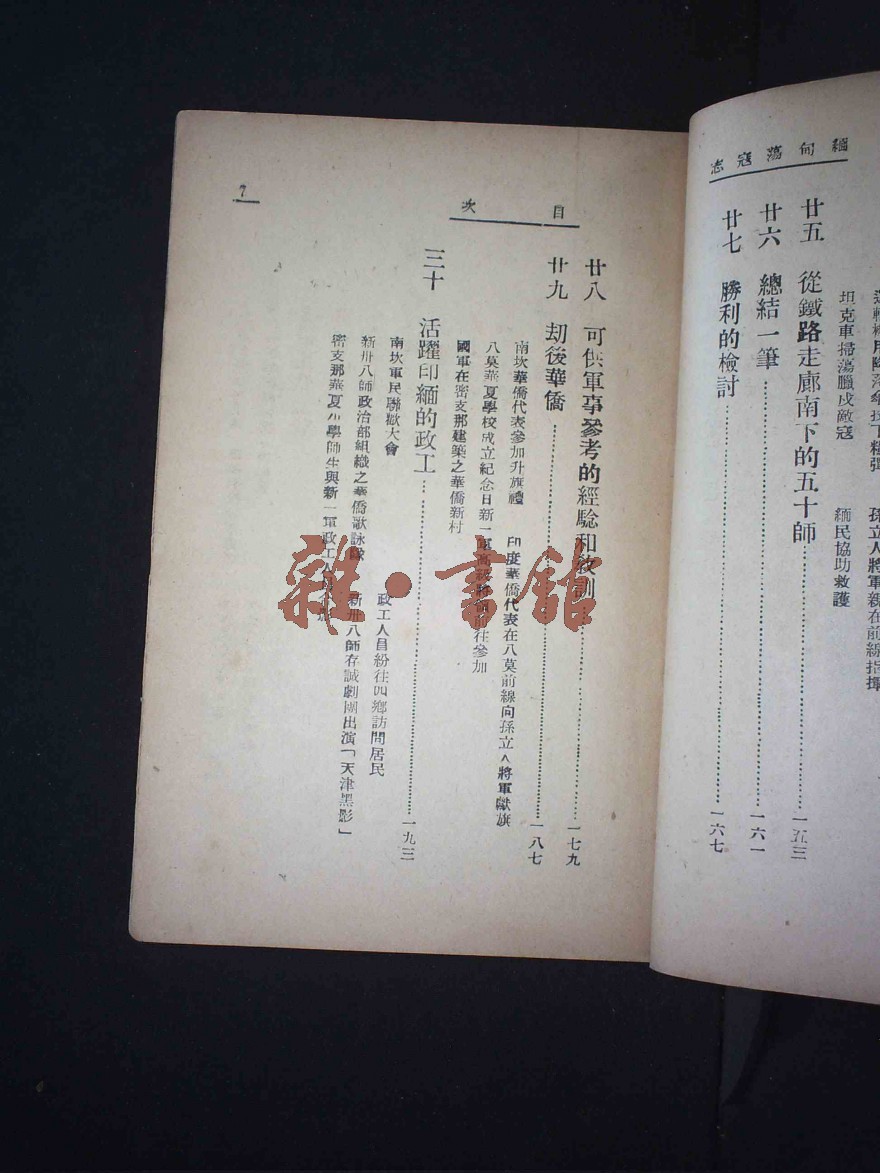 緬甸蕩寇志
孫立人將軍親在前線指揮
坦克車掃蕩臘戍敵寇 緬民協助救護
廿五 從鐵路走廊南下的五十師……一五三
廿六 總結一筆……一六一
廿七 勝利的檢討……一六七
目次
廿八 可供軍事參考的經驗和教訓……一七九
廿九 刧後華僑……一八七
南坎華僑代表參加升旗禮 印度華僑代表在八莫前線向孫立人將軍獻旗
八莫華夏學校成立紀念日新一軍高級將領前往參加
國軍在密支那建築之華僑新村
三十 活躍印緬的政工……一九三
南坎軍民聯歡大會 政工人員紛往四鄉訪問居民
新卅八師政治部組織之華僑歌詠隊 新卅八師存誠劇團出演「天津黑影」
密支那華夏小學師生與新一軍政工人員合影
7
雜·書館